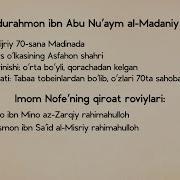 durahmon ibn Abu Nu'aym al-Madaniy
ijriy 70-sana Madinada
s o'lkasining Asfahon shahri
inishi: o'rta bo'yli, qorachadan kelgan
ati: Tabaa tobeinlardan bo'lib, o'zlari 70ta sahoba
Imom Nofe'ning qiroat roviylari:
o ibn Mino az-Zarqiy rahimahulloh
smon ibn Sa'id al-Misriy rahimahulloh